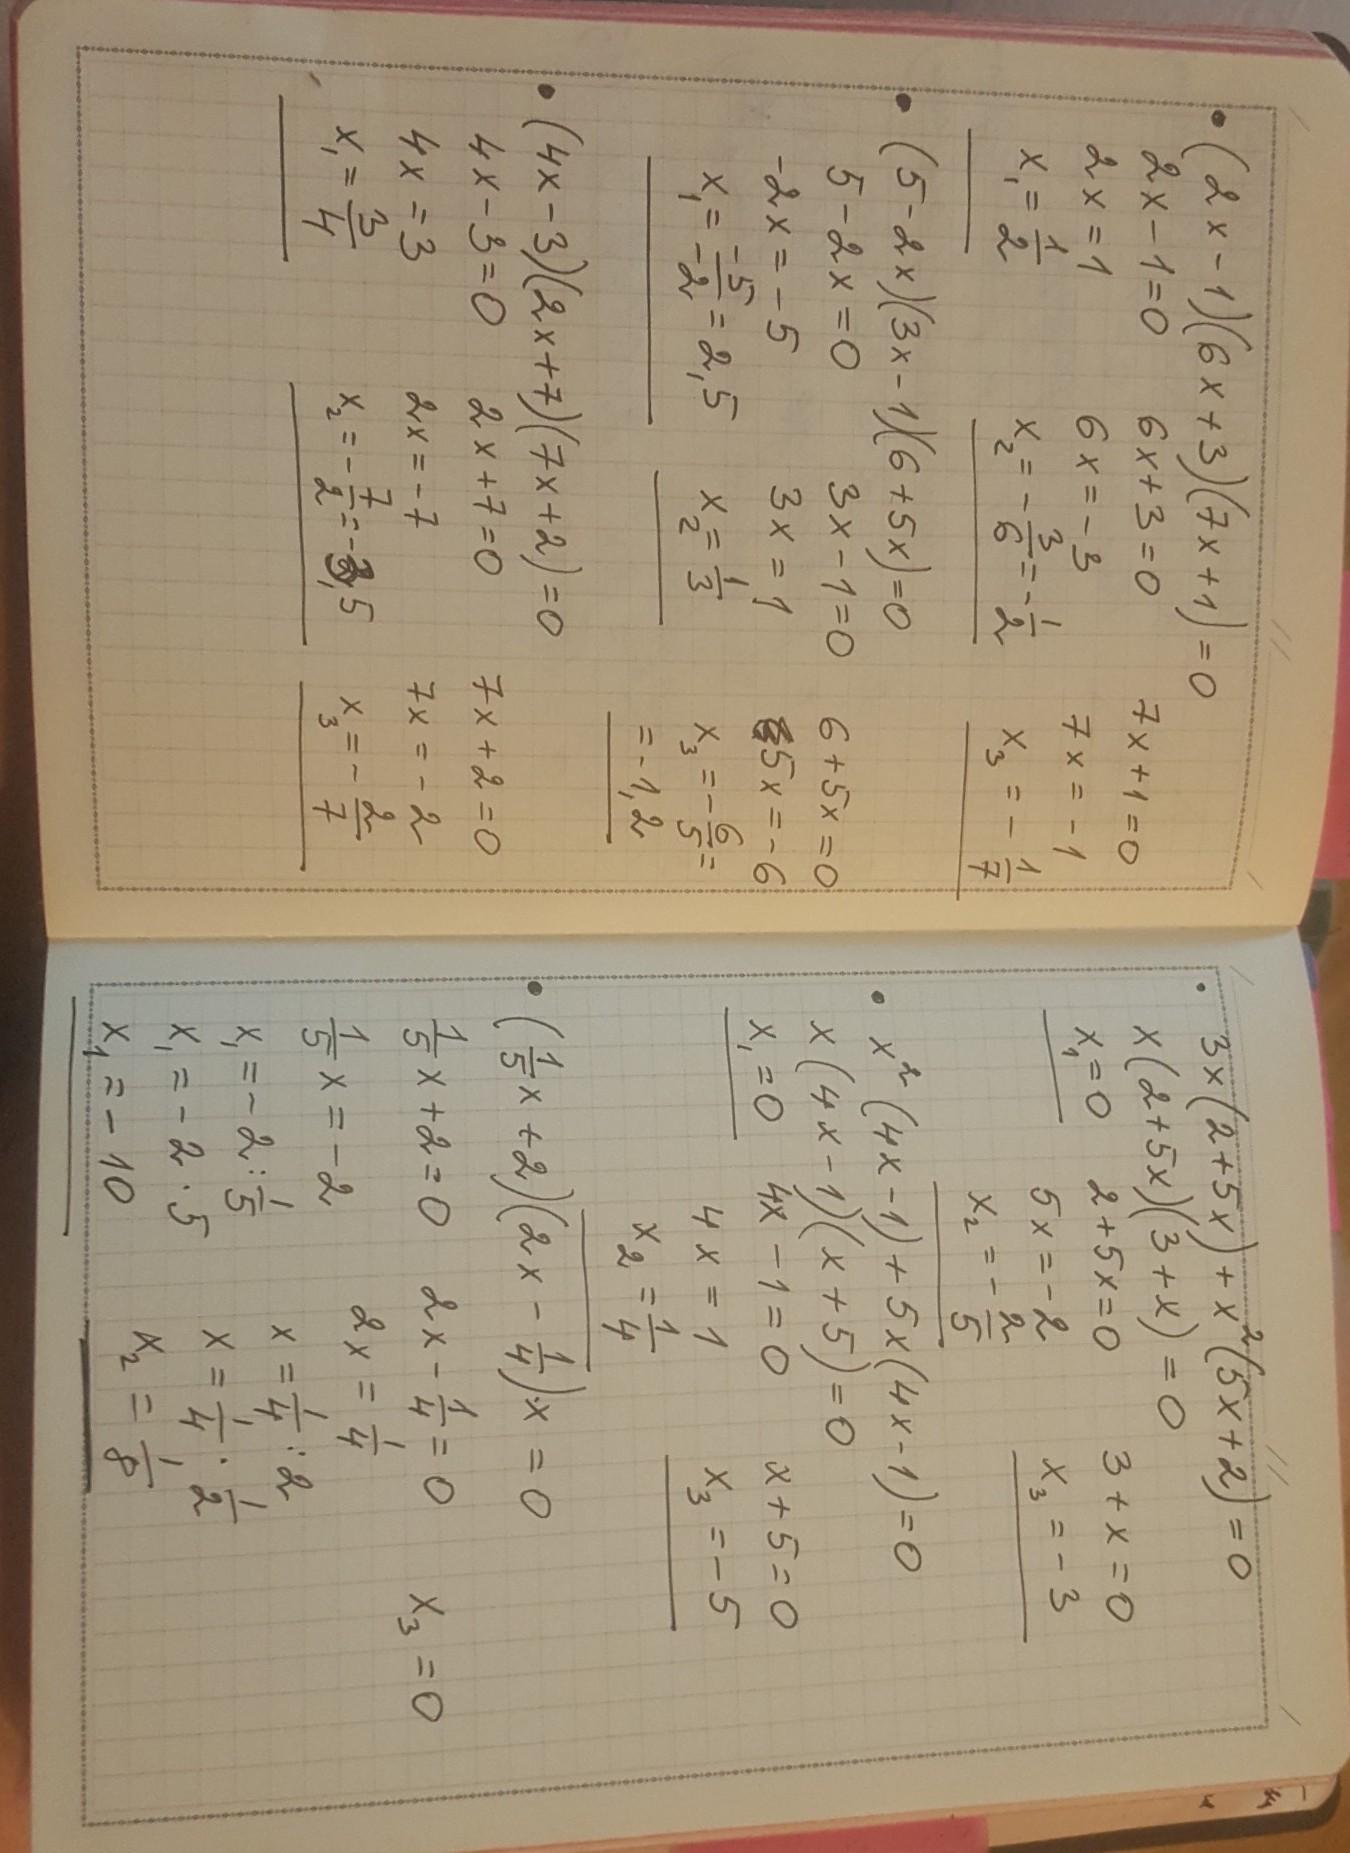 • (2x-1)(6x+3)(7x+1)=0
2x-1=0 6x+3=0 7x+1=0
2x=1 6x=-3 7x=-1
x₁=1/2 x₂=-3/6=-1/2 x₃=-1/7
• (5-2x)(3x-1)(6+5x)=0
5-2x=0 3x-1=0 6+5x=0
-2x=-5 3x=1 5x=-6
x₁=-5/-2=2,5 x₂=1/3 x₃=-6/5=
=-1,2
• (4x-3)(2x+7)(7x+2)=0
4x-3=0 2x+7=0 7x+2=0
4x=3 2x=-7 7x=-2
x₁=3/4 x₂=-7/2=-3,5 x₃=-2/7
• 3x(2+5x)+x²(5x+2)=0
x(2+5x)(3+x)=0
x₁=0 2+5x=0 3+x=0
5x=-2 x₃=-3
x₂=-2/5
• x²(4x-1)+5x(4x-1)=0
x(4x-1)(x+5)=0
x₁=0 4x-1=0 x+5=0
4x=1 x₃=-5
x₂=1/4
• (1/5x+2)(2x-1/4)·x=0
1/5x+2=0 2x-1/4=0 x₃=0
1/5x=-2 2x=1/4
x₁=-2:1/5 x=1/4:2
x₁=-2·5 x=1/4·1/2
x₁=-10 x₂=1/8